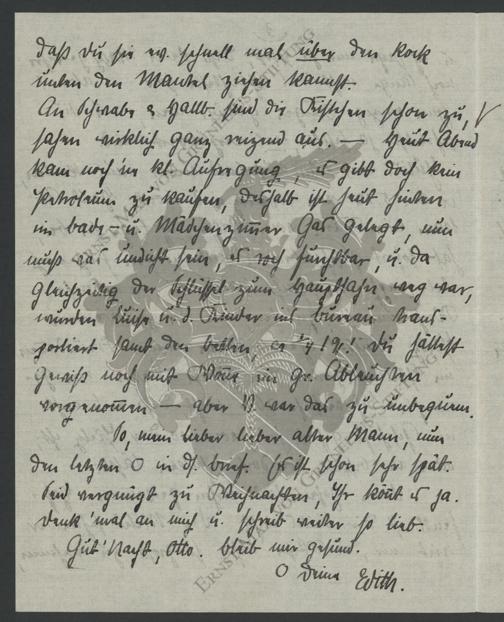 daß Du sie ev. schnell mal über den Rock
unten den Mantel ziehen kannst.
An Schwabe & Hallb. sind die Kistchen schon zu,
sahen wirklich ganz reizend aus. — Heut Abend
kam noch 'ne kl. Aufregung, es gibt doch kein
Petroleum zu kaufen, deshalb ist heut hinten
im Bade- u. Mädchenzimmer Gas gelegt, nun
muß was undicht sein, es roch furchtbar, u. da
gleichzeitig der Schlüssel zum Haupthahn weg war,
wurden Luise u. d. Kinder ins Bureau trans-
portiert samt den Betten, Du hättest
gewiß noch mit Wonne ein gr. Ableuchten
vorgenommen — aber mir war das zu unbequem.
So, mein lieber lieber alter Mann, nun
den letzten O in ds. Brief. Es ist schon sehr spät.
Seid vergnügt zu Weihnachten, Ihr könnt es ja.
Denk' mal an mich u. schreib weiter so lieb.
Gut' Nacht, Otto. Bleib mir gesund.
O Deine Edith.